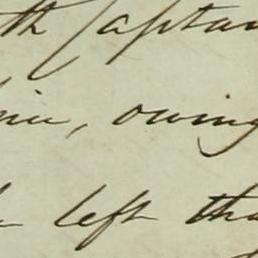 th Captain
nia, owing
left tha